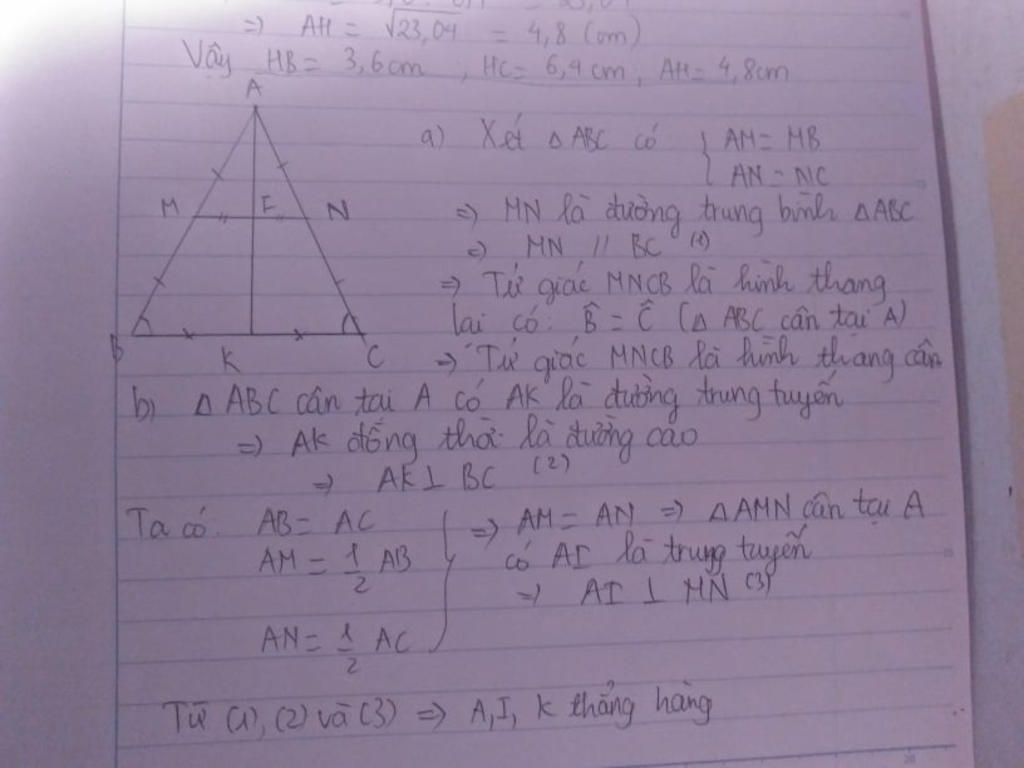 => AH = √23,04 = 4,8 (cm)
Vậy HB = 3,6cm , HC = 6,4cm , AH = 4,8cm
A
a) Xét △ ABC có { AM = MB
AN = NC
M E N
=> MN là đường trung bình △ABC
=> MN // BC (1)
=> Tứ giác MNCB là hình thang
lại có: B̂ = Ĉ (△ ABC cân tại A)
B K C
=> Tứ giác MNCB là hình thang cân
b) △ ABC cân tại A có AK là đường trung tuyến
=> AK đồng thời là đường cao
=> AK ⊥ BC (2)
Ta có AB = AC
AM = 1/2 AB
AN = 1/2 AC
=> AM = AN => △AMN cân tại A
có AI là trung tuyến
=> AI ⊥ MN (3)
Từ (1), (2) và (3) => A, I, K thẳng hàng